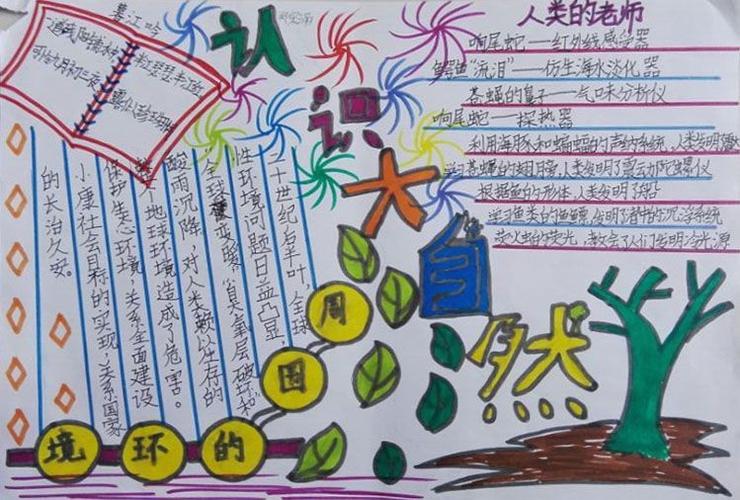 认识大自然
暮江吟
人类的老师
响尾蛇——红外线感受器
鳄鱼“流泪”——仿生海水淡化器
苍蝇的鼻子——气味分析仪
响尾蛇——探热器
利用海豚和蝙蝠的声纳系统，人类发明
学习苍蝇的翅膀，人类发明了震动陀螺仪
根据鱼的形体，人类发明了船
学习鱼类的鱼鳔，发明了潜艇的沉浮系统
萤火虫的荧光，教会了人们发明冷光源
二十世纪后半叶，全球
性环境问题日益凸显
全球变暖，臭氧层破坏和
酸雨沉降，对人类赖以生存的
整个地球环境造成了危害。
保护生态环境，关系全面建设
小康社会目标的实现，关系国家
的长治久安。
周围的环境